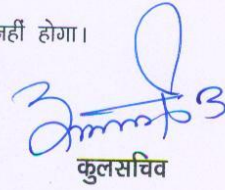 नहीं होगा।
कुलसचिव